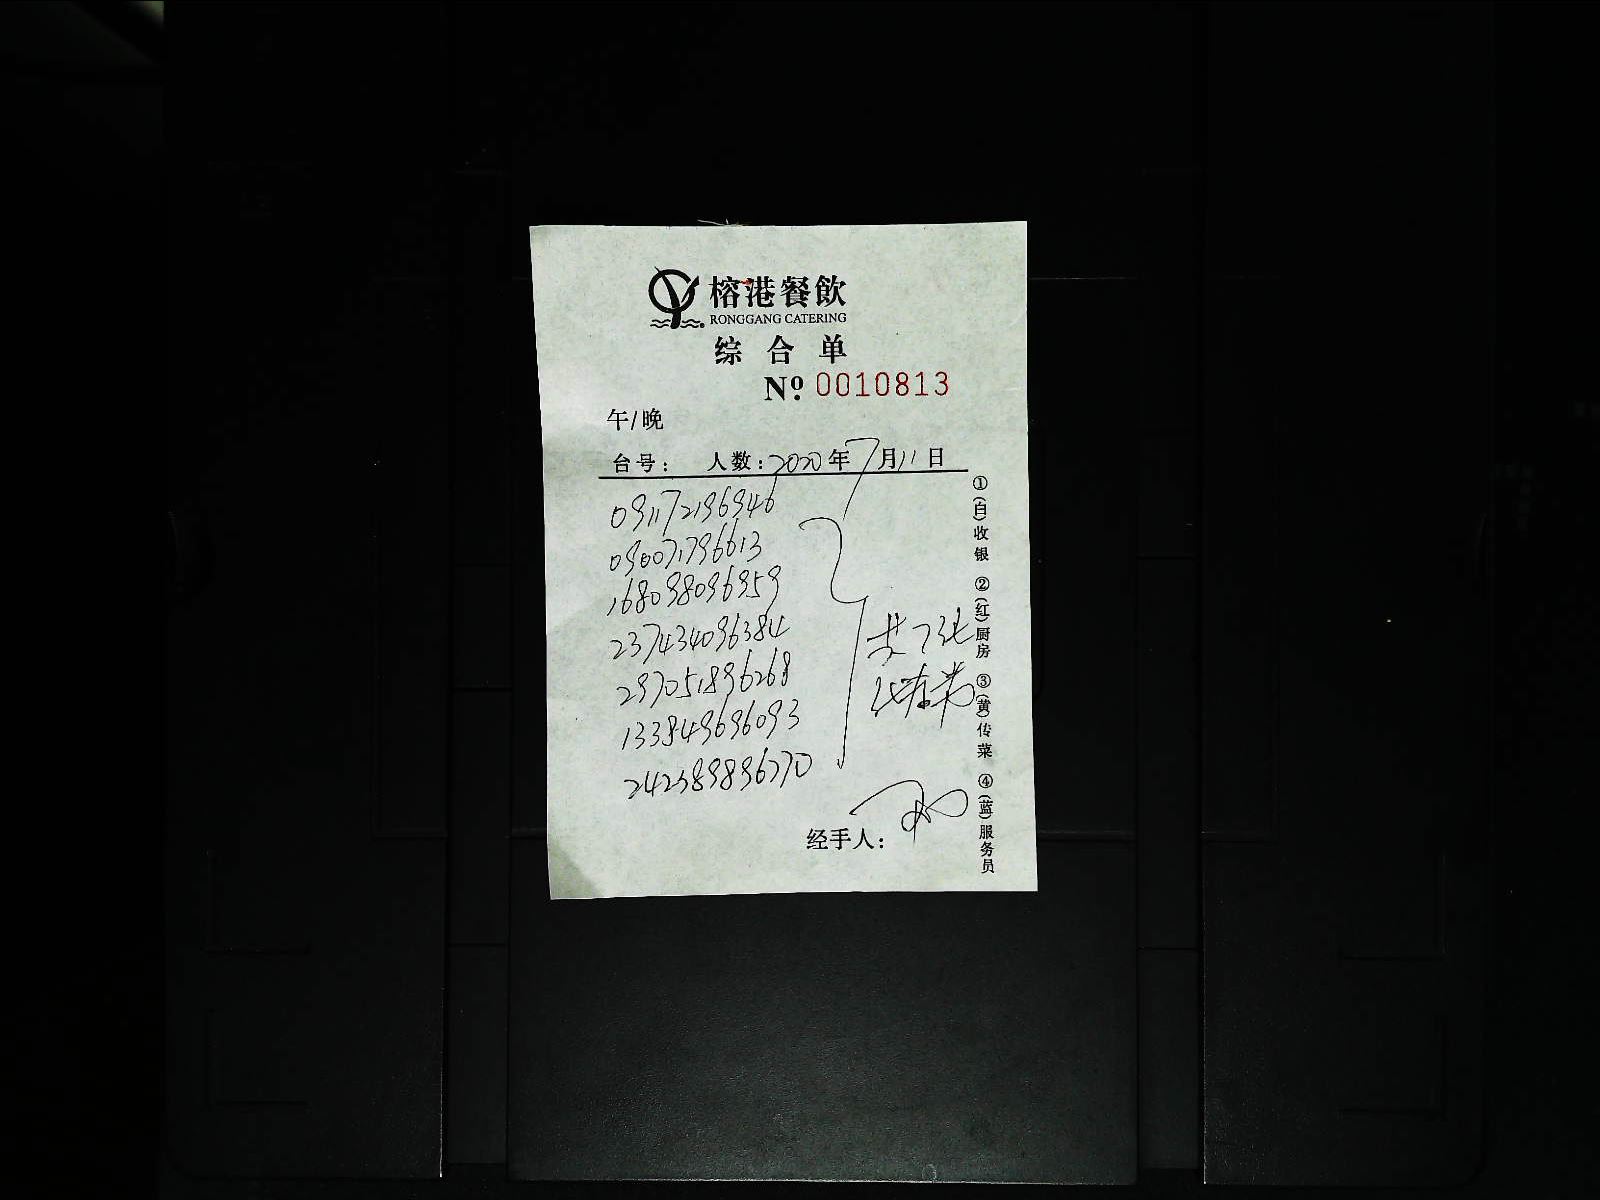 榕港餐飲
RONGGANG CATERING
综合单
Nº 0010813
午/晚
台号： 人数：2020年7月11日
091172196946
090071796613
168098096959
237434096384
297051896268
133849696093
242389896270
共7张
经手人：
①(白)收银 ②(红)厨房 ③(黄)传菜 ④(蓝)服务员